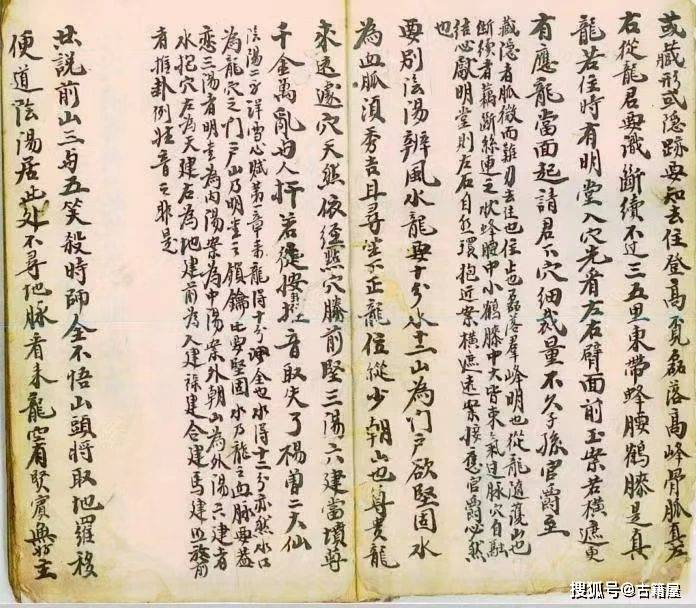 或藏形或隐跡要知去住登高覓磊落高峰骨脈真左
右從龍君要識斷續不过三五里束帶蜂腰鶴膝是真
龍若住時有明堂入穴先看左右臂面前玉案若橫遮更
有應龍當面起請君下穴細裁量不久子孫官爵至
藏隐者脈微而難日去住也住止也磊落羣峰明也從龍随護山也
断续者藕断絲連之状蜂腰中小鶴膝中大皆束氣过脈穴自融
结心獻明堂則左右自然環抱近案橫遮遠案接應官爵必然
也
要别陰陽辨風水龍要十分水十二山為門户欲堅固水
為血脈須秀吉且尋坐下正龍位縱少朝山也尊贵龍
來远遠穴天然依经㸃穴勝前賢三陽六建當墳尊
千金萬亂与人扦若從接音取失了楊曾二大仙
陰陽二字詳雪心賦第一章來龍得十分全也水得十二分亦然水口
為龍穴之門户山乃明堂之鎖鑰比要堅固水乃龍之血脈要益
恋三陽者明堂為内陽案為中陽案外朝山為外陽六建者
水抱穴左為天建右為地建前為人建禄建合建馬建
者推卦例装音之非是
此説前山三与五笑殺時師全不悟山頭將取地羅移
便道陰陽居此处不尋地脈看來龍
搜狐号@古籍屋